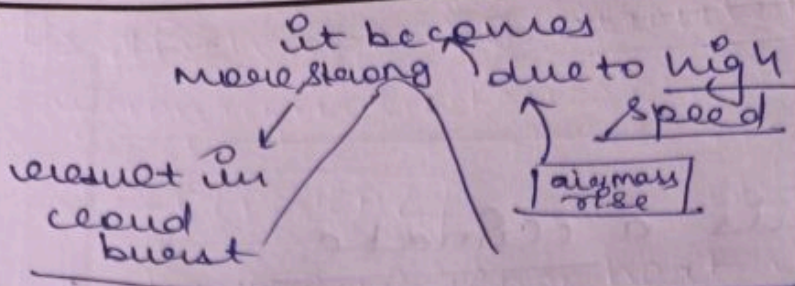 it becomes
more strong
due to high
speed
airmass
rise
result in
cloud
burst